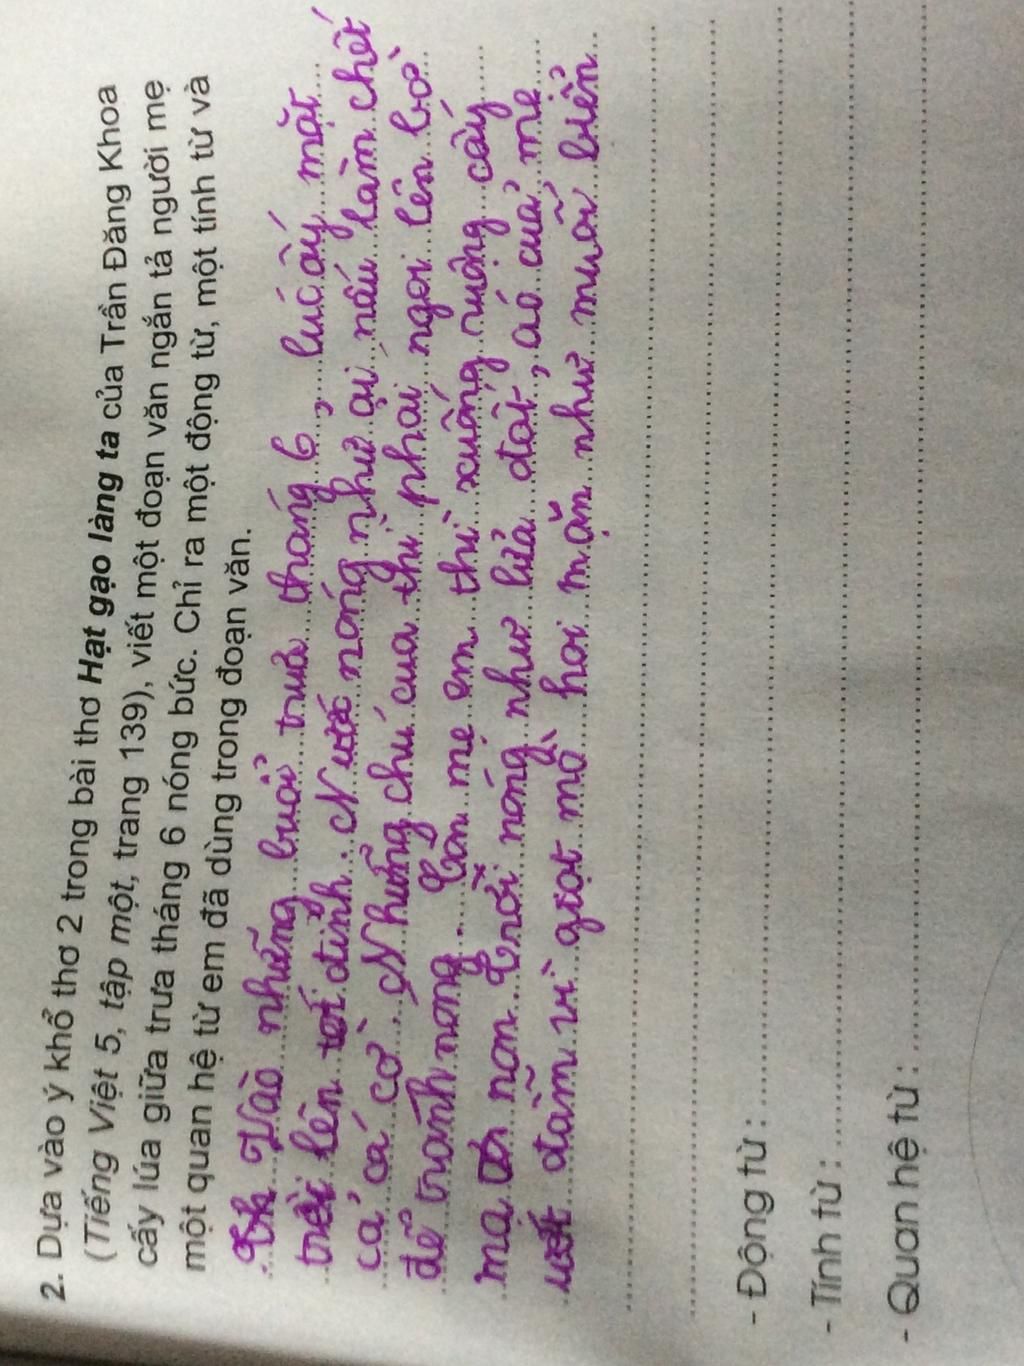 2. Dựa vào ý khổ thơ 2 trong bài thơ Hạt gạo làng ta của Trần Đăng Khoa
(Tiếng Việt 5, tập một, trang 139), viết một đoạn văn ngắn tả người mẹ
cấy lúa giữa trưa tháng 6 nóng bức. Chỉ ra một động từ, một tính từ và
một quan hệ từ em đã dùng trong đoạn văn.
Vào những buổi trưa tháng 6, lúc ấy mặt
trời lên tới đỉnh. Nước nóng như ại nấu làm chết
cả cá cờ. Những chú cua thì phải ngoi lên bờ
để tránh nóng. Còn mẹ em thì xuống ruộng cấy
mạ non. Trời nóng như lửa đốt, áo của mẹ
ướt đẫm vì giọt mồ hơi mặn như muối biển
- Động từ :
- Tính từ :
- Quan hệ từ :